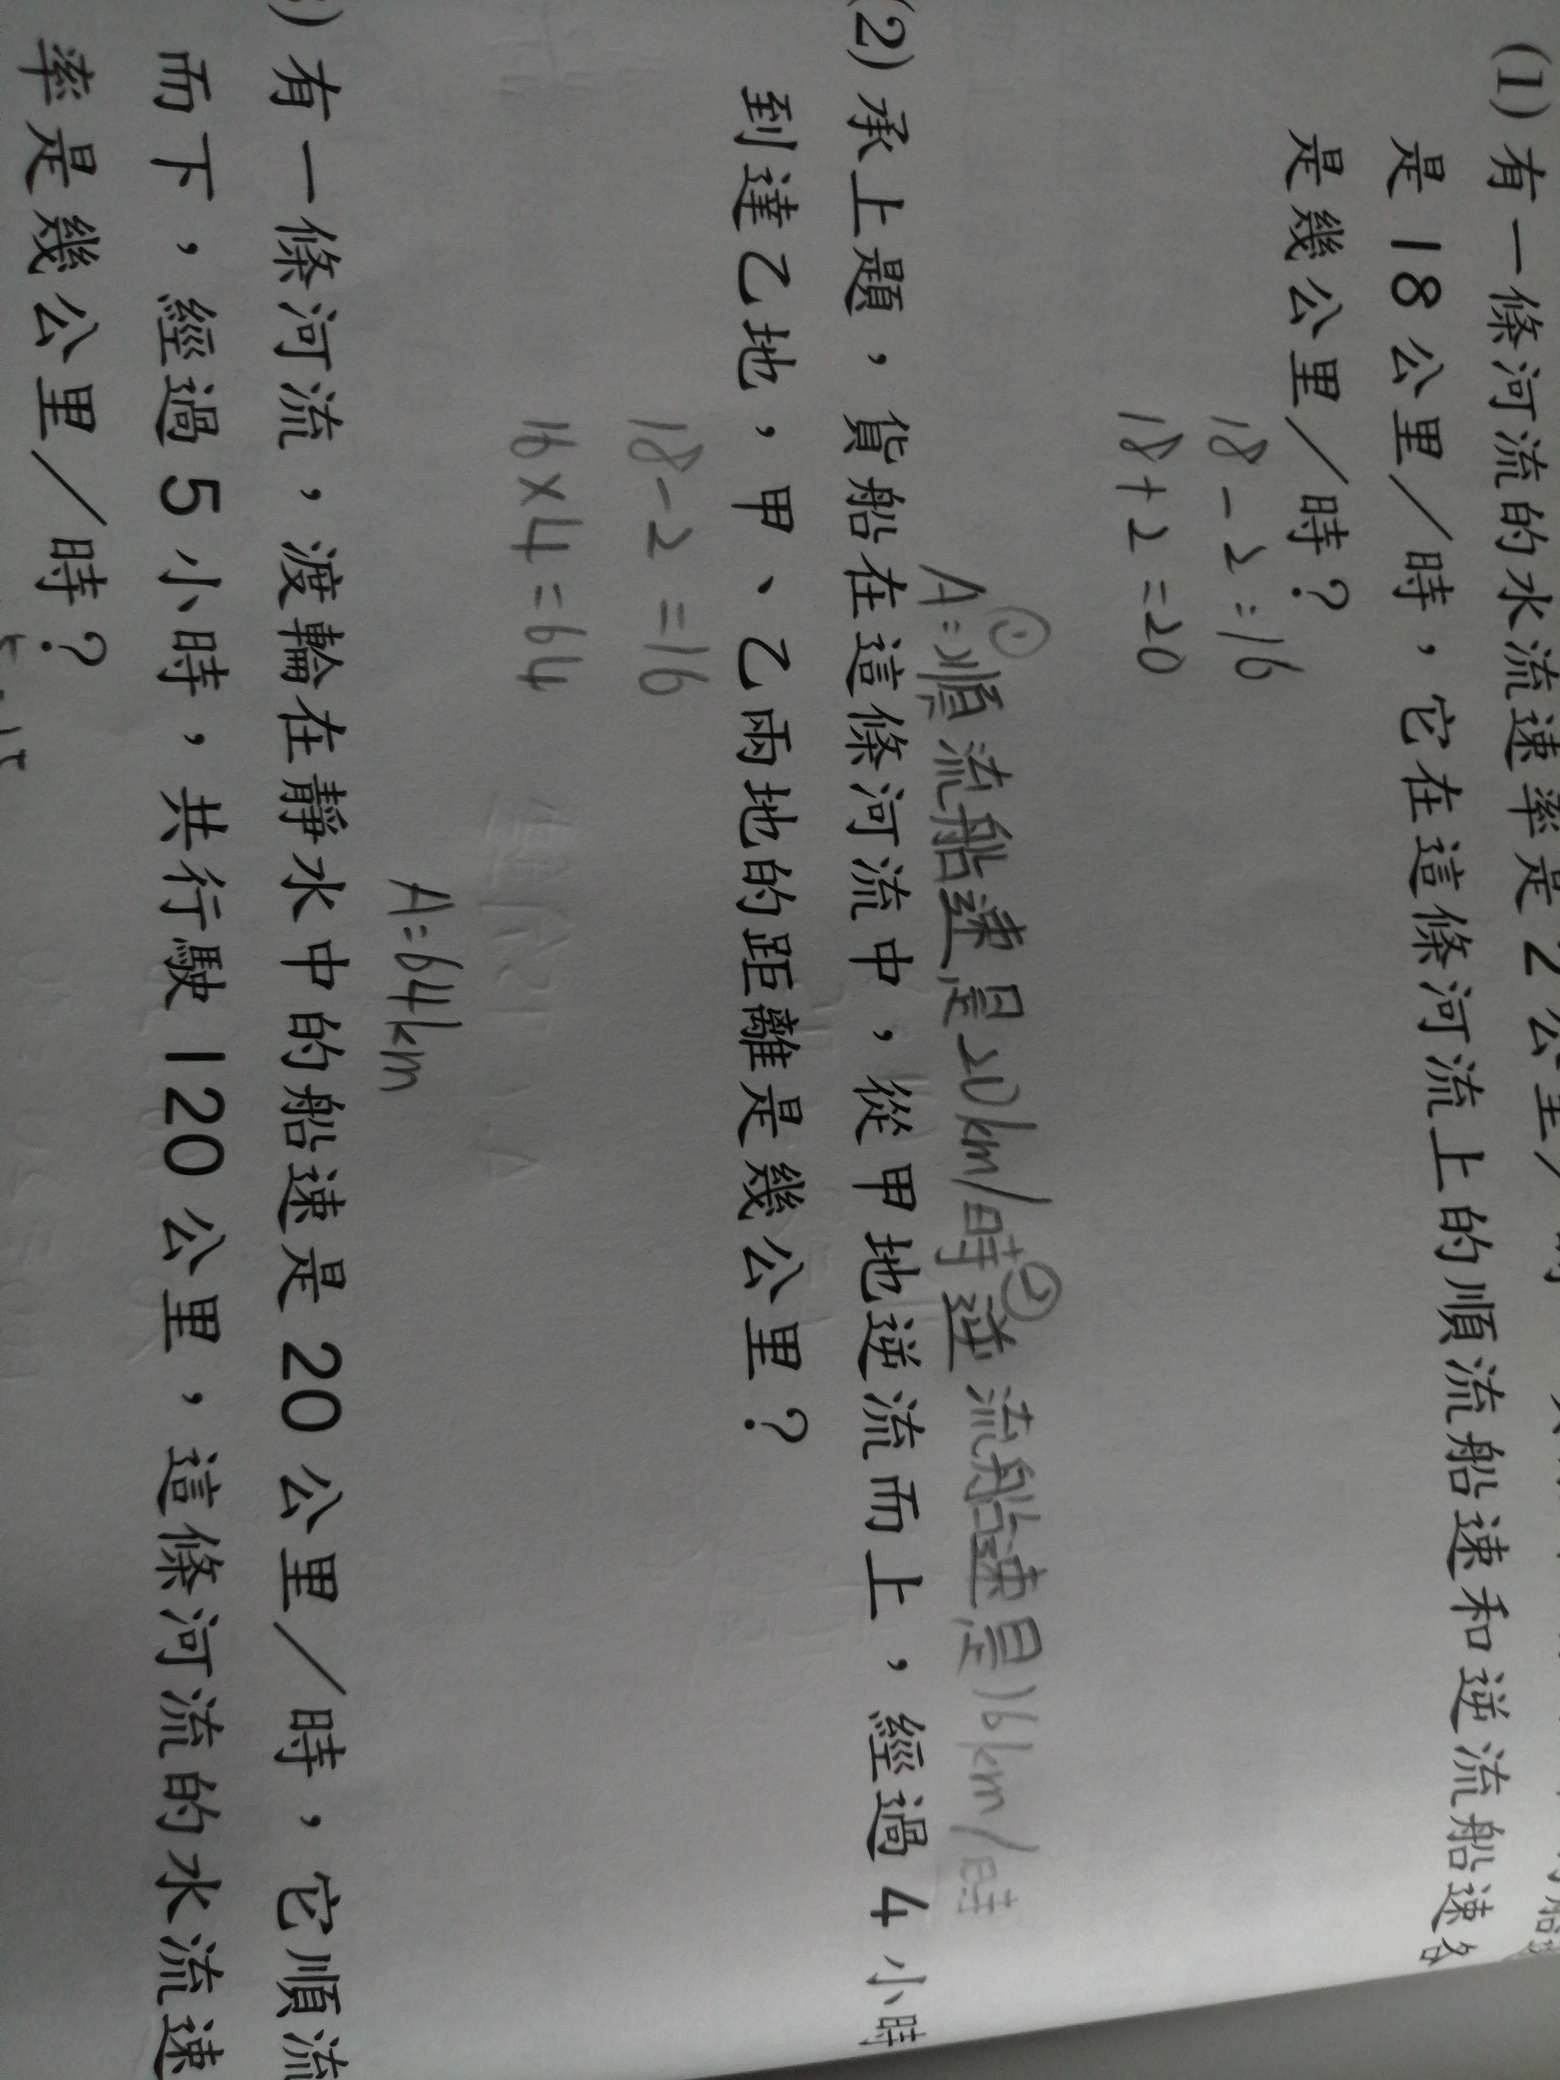 (1) 有一條河流的水流速率是 2 公里／時
是 18 公里／時，它在這條河流上的順流船速和逆流船速各
是幾公里／時？
18-2=16
18+2=20
A:①順流船速是20km/時②逆流船速是16km/時
(2) 承上題，貨船在這條河流中，從甲地逆流而上，經過 4 小時
到達乙地，甲、乙兩地的距離是幾公里？
18-2=16
16×4=64
A:64km
) 有一條河流，渡輪在靜水中的船速是 20 公里／時，它順流
而下，經過 5 小時，共行駛 120 公里，這條河流的水流速
率是幾公里／時？